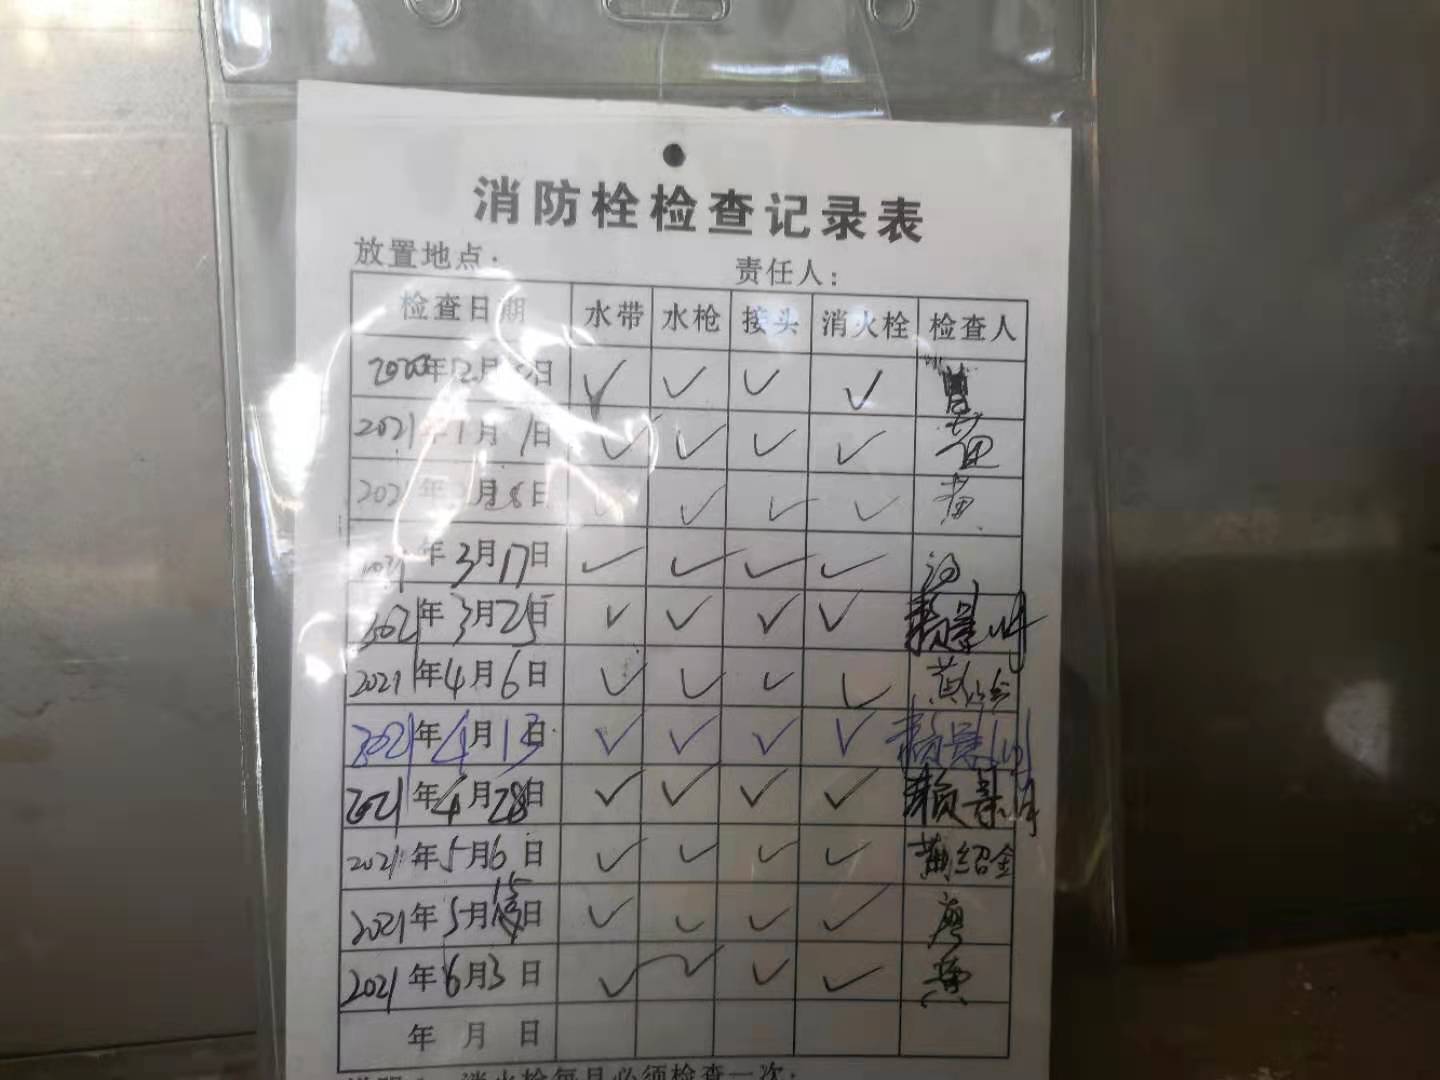 消防栓检查记录表
放置地点: 责任人:
检查日期 水带 水枪 接头 消火栓 检查人
2020年12月日 ✓ ✓ ✓ ✓
2021年1月1日 ✓ ✓ ✓ ✓
2021年2月8日 ✓ ✓ ✓ ✓ 黄
2021年3月17日 ✓ ✓ ✓ ✓
2021年3月25日 ✓ ✓ ✓ ✓
2021年4月6日 ✓ ✓ ✓ ✓ 黄绍金
2021年4月13日 ✓ ✓ ✓ ✓
2021年4月28日 ✓ ✓ ✓ ✓
2021年5月6日 ✓ ✓ ✓ ✓ 黄绍金
2021年5月15日 ✓ ✓ ✓ ✓ 廖
2021年6月3日 ✓ ✓ ✓ ✓ 黄
年 月 日
消火栓每月必须检查一次;